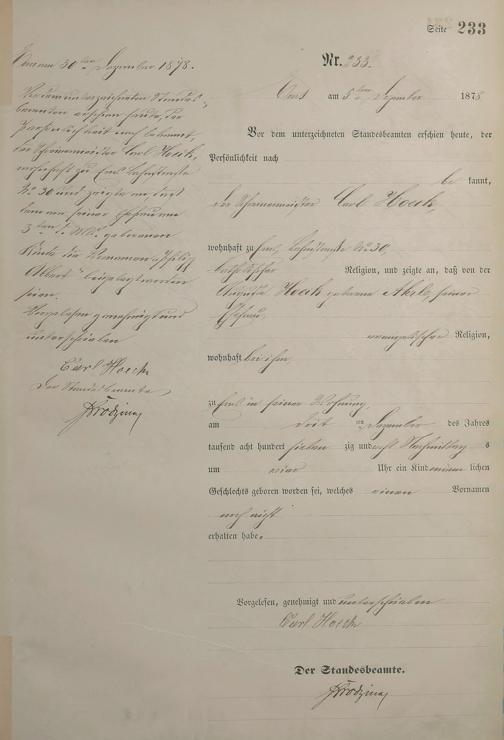 Seite 233
Nr. 233.
Ems am 5ten Dezember 1878
Vor dem unterzeichneten Standesbeamten erschien heute, der
Persönlichkeit nach
be kannt,
der Schreinermeister Carl Hoch,
wohnhaft zu Ems, No 30,
katholischer Religion, und zeigte an, daß von der
Hoch geborene seiner
Ehefrau,
evangelischer Religion,
wohnhaft bei ihm,
zu Ems in seiner Wohnung,
am ten Dezember des Jahres
tausend acht hundert sieben zig und acht Nachmittags
um Uhr ein Kind männ lichen
Geschlechts geboren worden sei, welches einen Vornamen
noch nicht
erhalten habe.
Vorgelesen, genehmigt und unterschrieben
Carl Hoch
Der Standesbeamte.
Ems am 30ten Dezember 1878.
Vor dem unterzeichneten Standes-
beamten erschien heute, der
Persönlichkeit nach bekannt,
der Schreinermeister Carl Hoch,
wohnhaft zu Ems
No 30 und zeigte an, daß
dem von seiner Ehefrau
3ten geborenen
Kinde die Vornamen
Albert beigelegt worden
seien.
Vorgelesen genehmigt und
unterschrieben
Carl Hoch
Der Standesbeamte